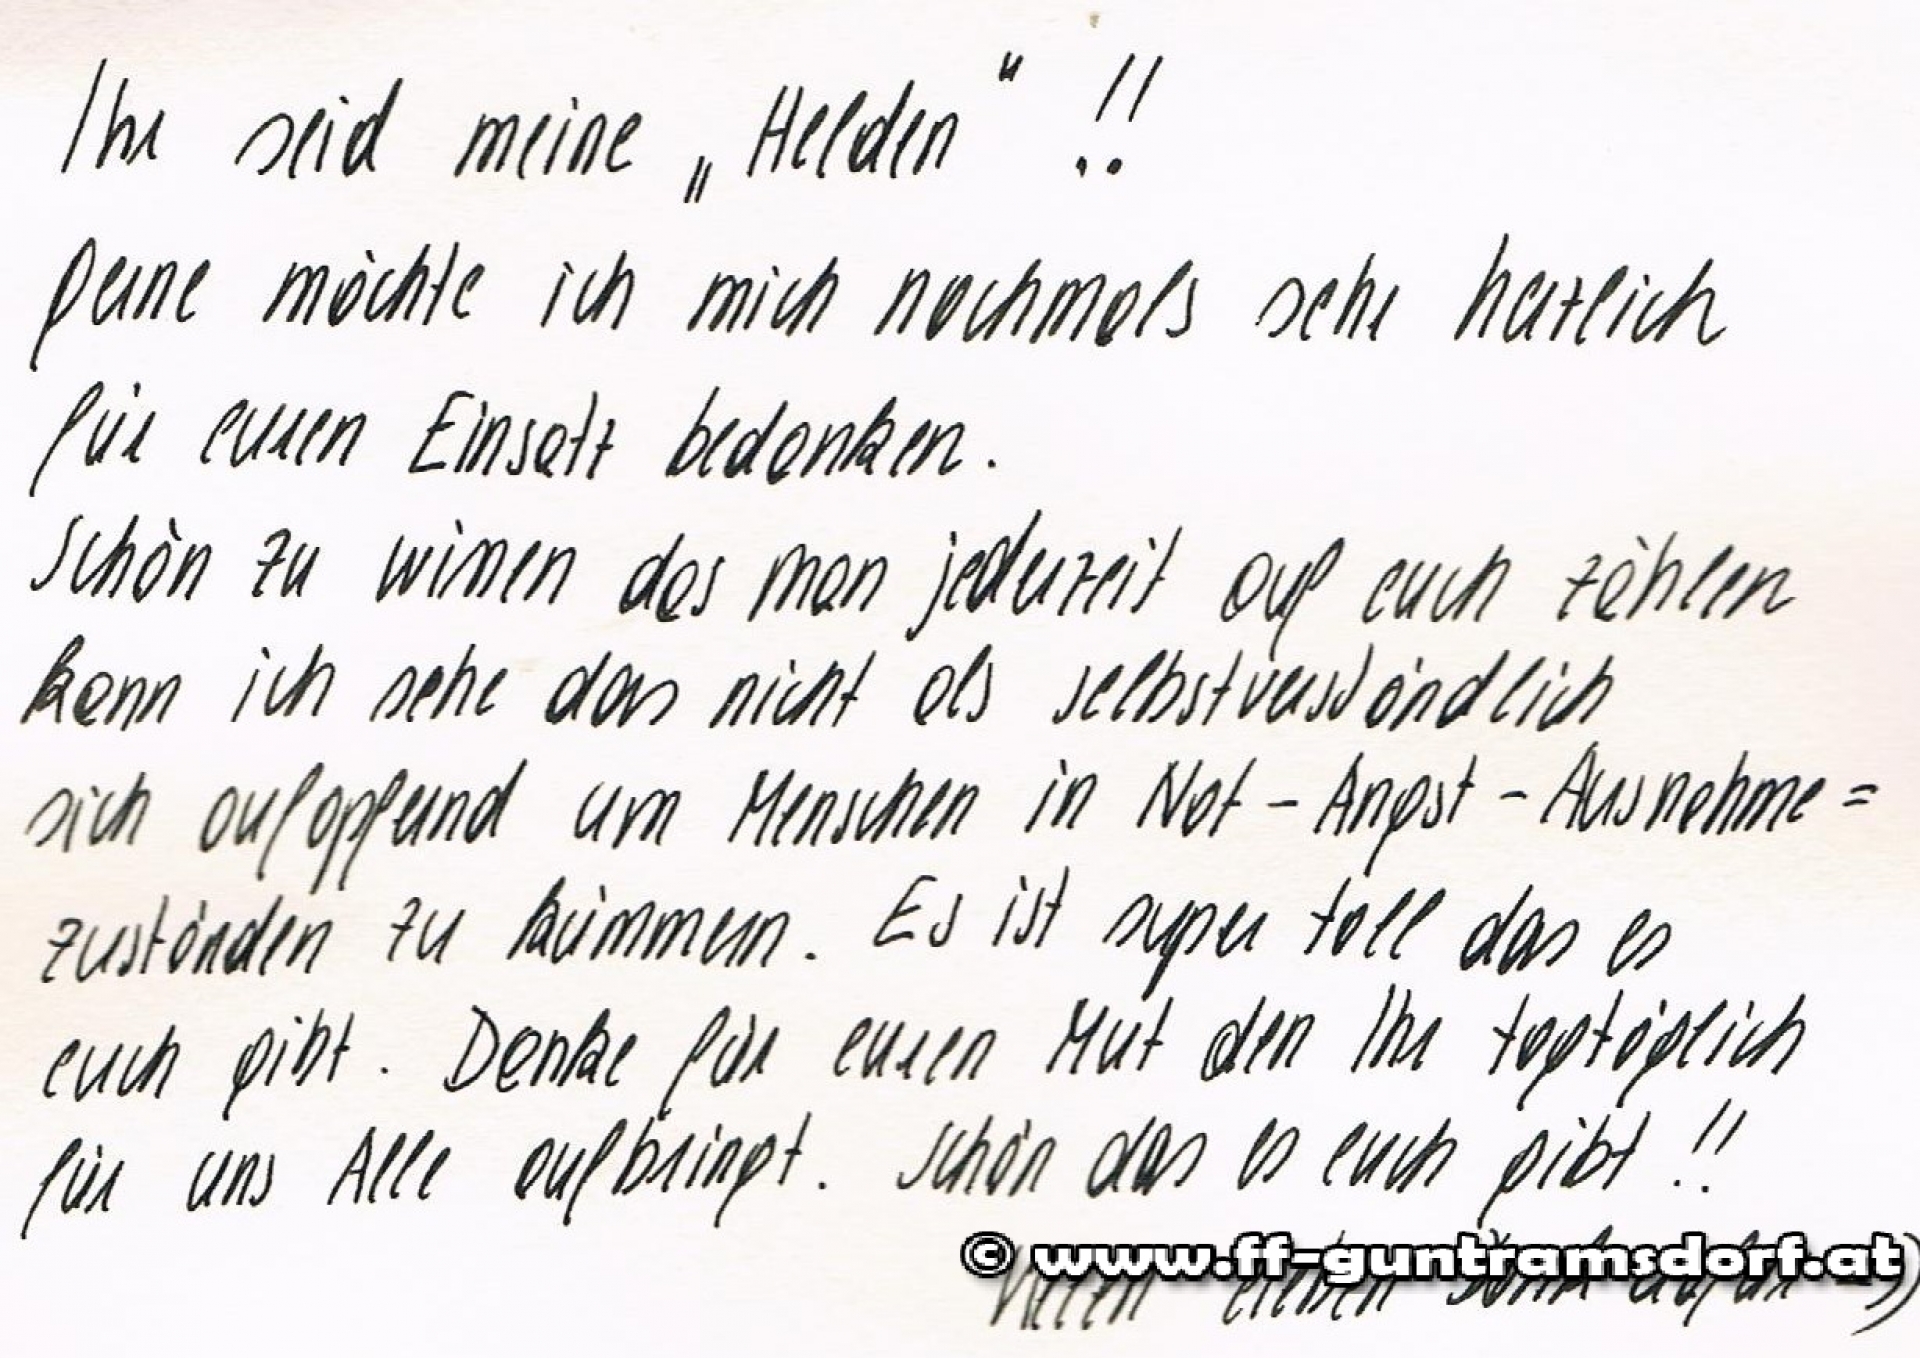 Ihr seid meine „Helden“ !!
gerne möchte ich mich nochmals sehr herzlich
für euren Einsatz bedanken.
Schön zu wissen das man jederzeit auf euch zählen
kann ich sehe das nicht als selbstverständlich
sich aufopfernd um Menschen in Not - Angst - Ausnahme=
zuständen zu kümmern. Es ist super toll das es
euch gibt. Danke für euren Mut den Ihr tagtäglich
für uns Alle aufbringt. Schön das es euch gibt !!
© www.ff-guntramsdorf.at
Vielen lieben Dank dafür =))